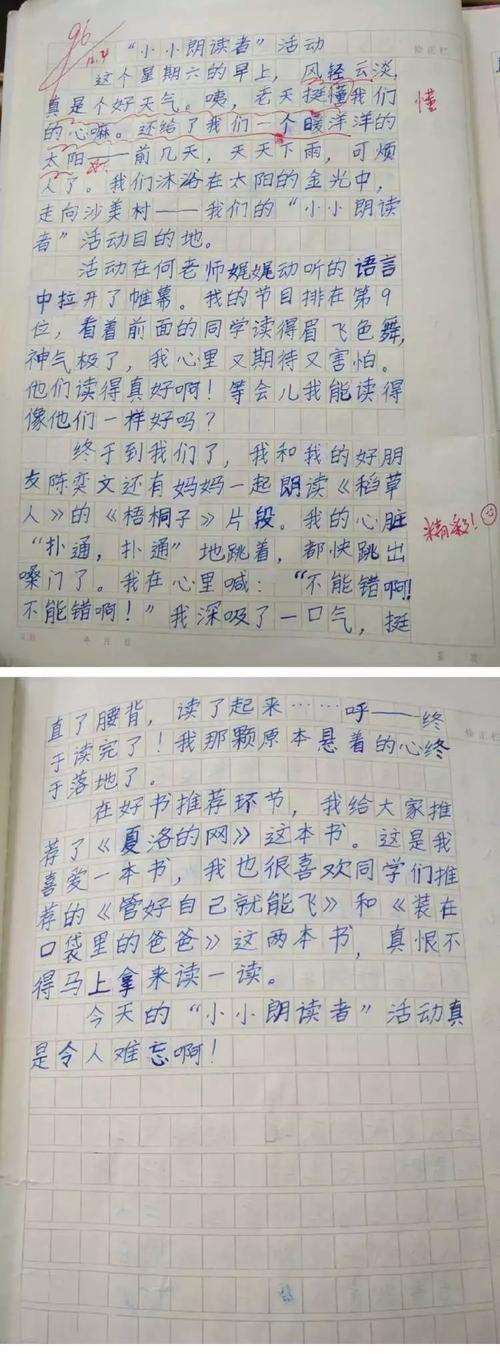 96
12.9
"小小朗读者"活动
修正栏
这个星期六的早上，风轻云淡，
真是个好天气。咦，老天挺懂我们
懂
的心嘛。还给了我们一个暖洋洋的
太阳——前几天，天天下雨，可烦
人了。我们沐浴在太阳的金光中，
走向沙美村——我们的"小小朗读
者"活动目的地。
活动在何老师娓娓动听的语言
中拉开了帷幕。我的节目排在第9
位，看着前面的同学读得眉飞色舞，
神气极了，我心里又期待又害怕。
他们读得真好啊！等会儿我能读得
像他们一样好吗？
终于到我们了，我和我的好朋
友陈奕文还有妈妈一起朗读《稻草
人》的《梧桐子》片段。我的心脏
精彩！
"扑通，扑通"地跳着，都快跳出
嗓门了。我在心里喊："不能错啊！
不能错啊！"我深吸了一口气，挺
年 月 日
直了腰背，读了起来……呼——终
修正栏
于读完了！我那颗原本悬着的心终
于落地了。
在好书推荐环节，我给大家推
荐了《夏洛的网》这本书。这是我
喜爱一本书，我也很喜欢同学们推
荐的《管好自己就能飞》和《装在
口袋里的爸爸》这两本书，真恨不
得马上拿来读一读。
今天的"小小朗读者"活动真
是令人难忘啊！